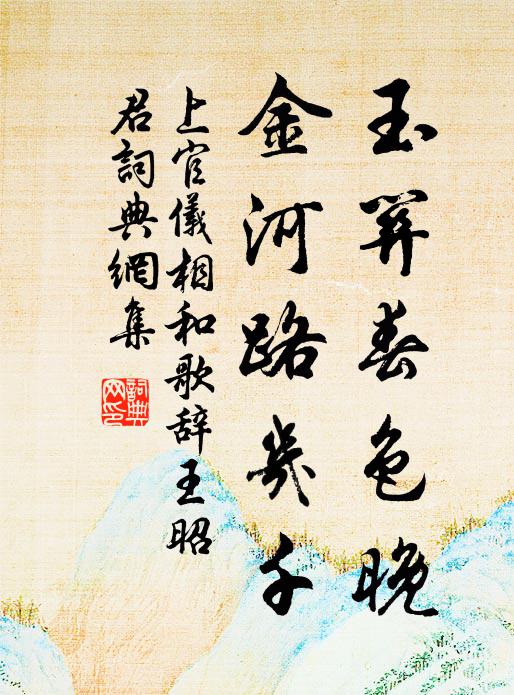 玉関春色晚
金河路幾千
上官儀相和歌辞王昭
君詞典網集
詞典
网印